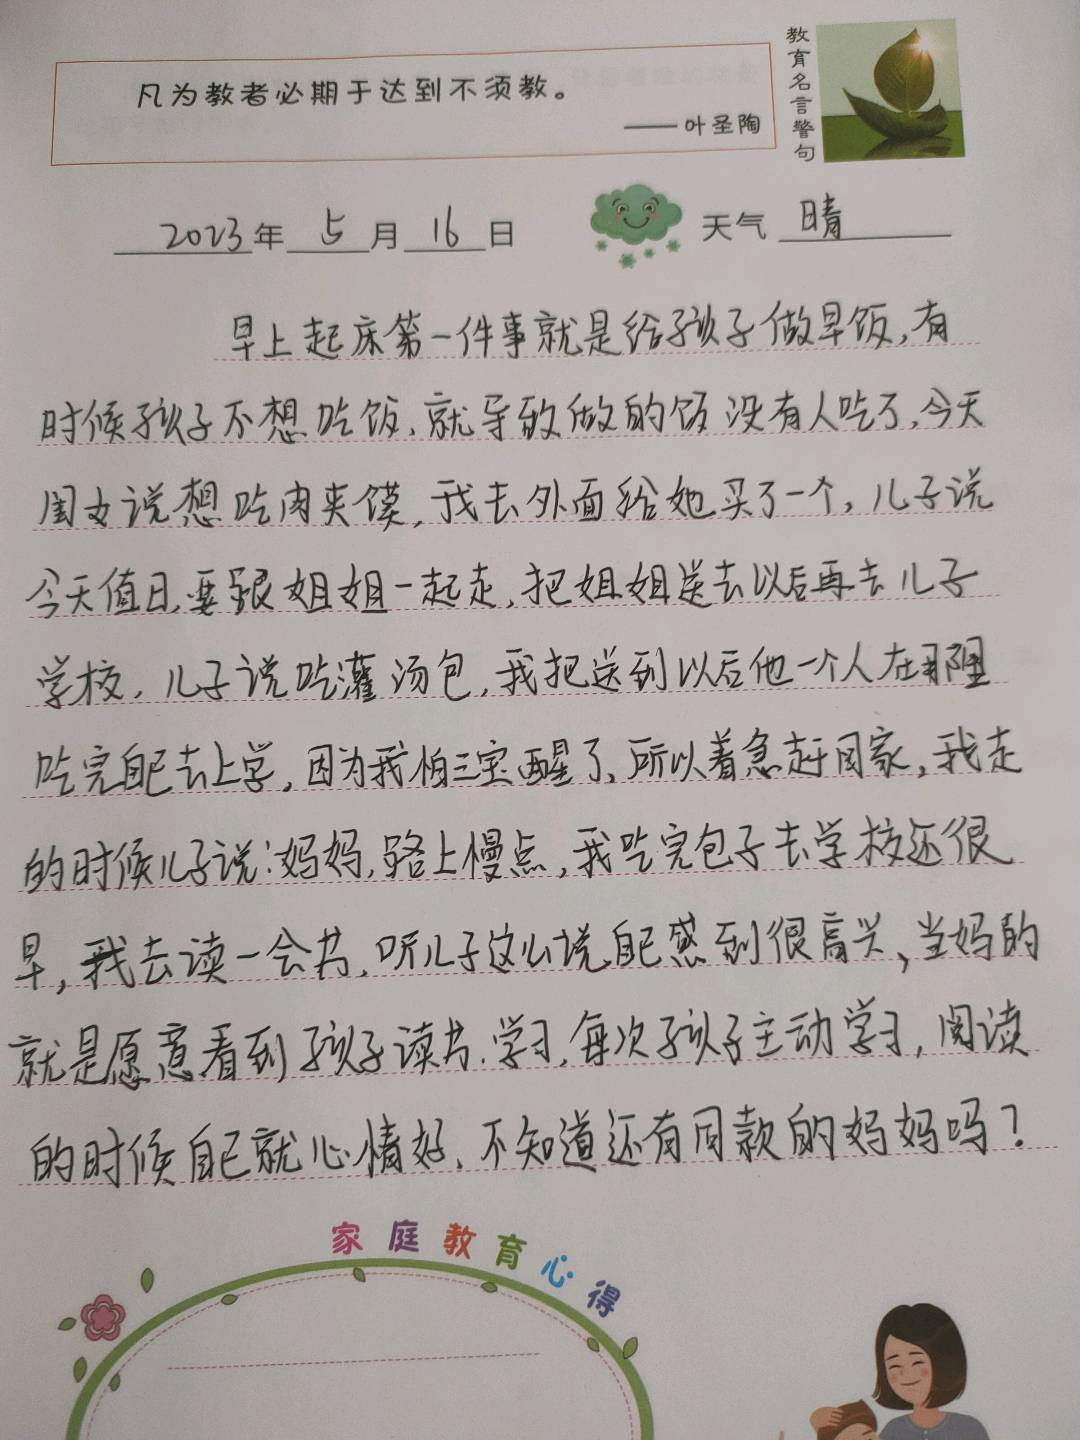 凡为教者必期于达到不须教。
——叶圣陶
教育名言警句
2023年 5月16日 天气 晴
早上起床第一件事就是给孩子做早饭,有
时候孩子不想吃饭,就导致做的饭没有人吃了,今天
闺女说想吃肉夹馍,我去外面给她买了一个,儿子说
今天值日,要跟姐姐一起走,把姐姐送去以后再去儿子
学校,儿子说吃灌汤包,我把送到以后他一个人在那里
吃完自己去上学,因为我怕三宝醒了,所以着急赶回家,我走
的时候儿子说:妈妈,路上慢点,我吃完包子去学校还很
早,我去读一会书,听儿子这么说自己感到很高兴,当妈的
就是愿意看到孩子读书.学习,每次孩子主动学习,阅读
的时候自己就心情好,不知道还有同款的妈妈吗?
家庭教育心得